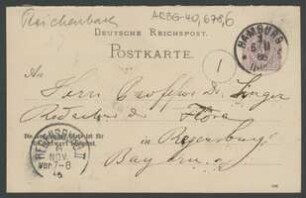 Reichenbach
ARBG-40,678,6
DEUTSCHE REICHSPOST.
POSTKARTE.
HAMBURG
1
An Herrn Professor Dr. Singer
Redacteur der Flora
in Regensburg
Bayern
REGENSBURG
NOV.
7-8